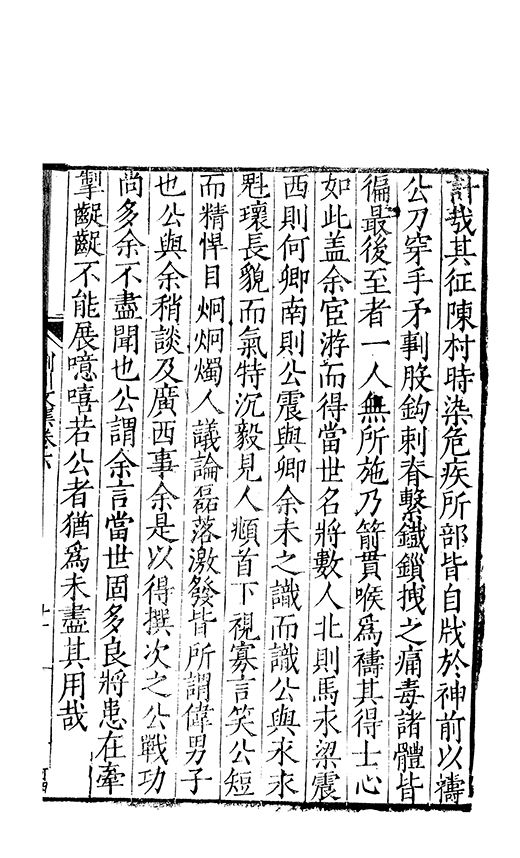 計哉其征陳村時染危疾所部皆自戕於神前以禱
公刀穿手矛剚股鈎刺脊繫鐵鎖拽之痛毒諸體皆
徧最後至者一人無所施乃箭貫喉爲禱其得士心
如此盖余宦游而得當世名將數人北則馬永梁震
西則何卿南則公震與卿余未之識而識公與永永
魁瓌長貌而氣特沉毅見人頫首下視寡言笑公短
而精悍目炯炯燭人議論磊落激發皆所謂偉男子
也公與余稍談及廣西事余是以得撰次之公戰功
尚多余不盡聞也公謂余言當世固多良將患在牽
掣齪齪不能展噫嘻若公者猶爲未盡其用哉
川文集卷六